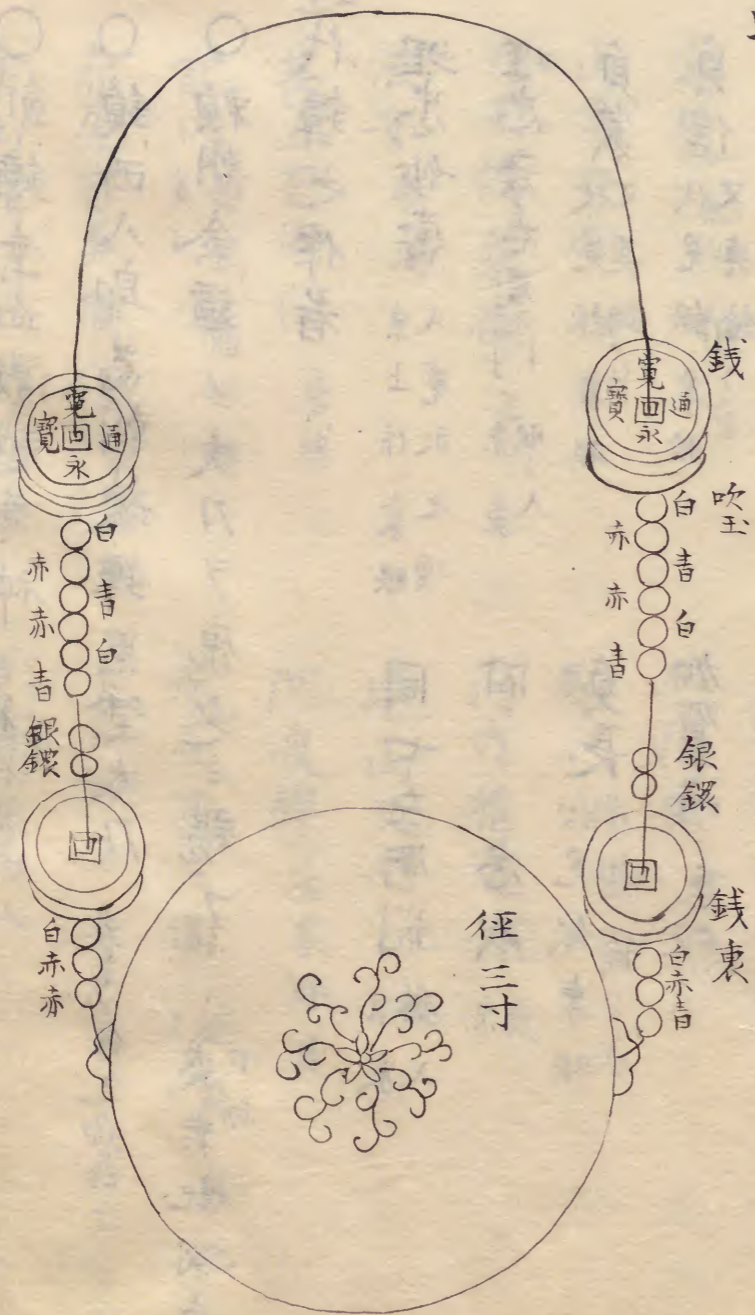 銭
寛永通寳
吹玉
白
赤
青
赤
白
青
銀鐶
銭裏
白赤青
径三寸
寛永通寳
白
赤
青
赤
白
青
銀鐶
白赤赤